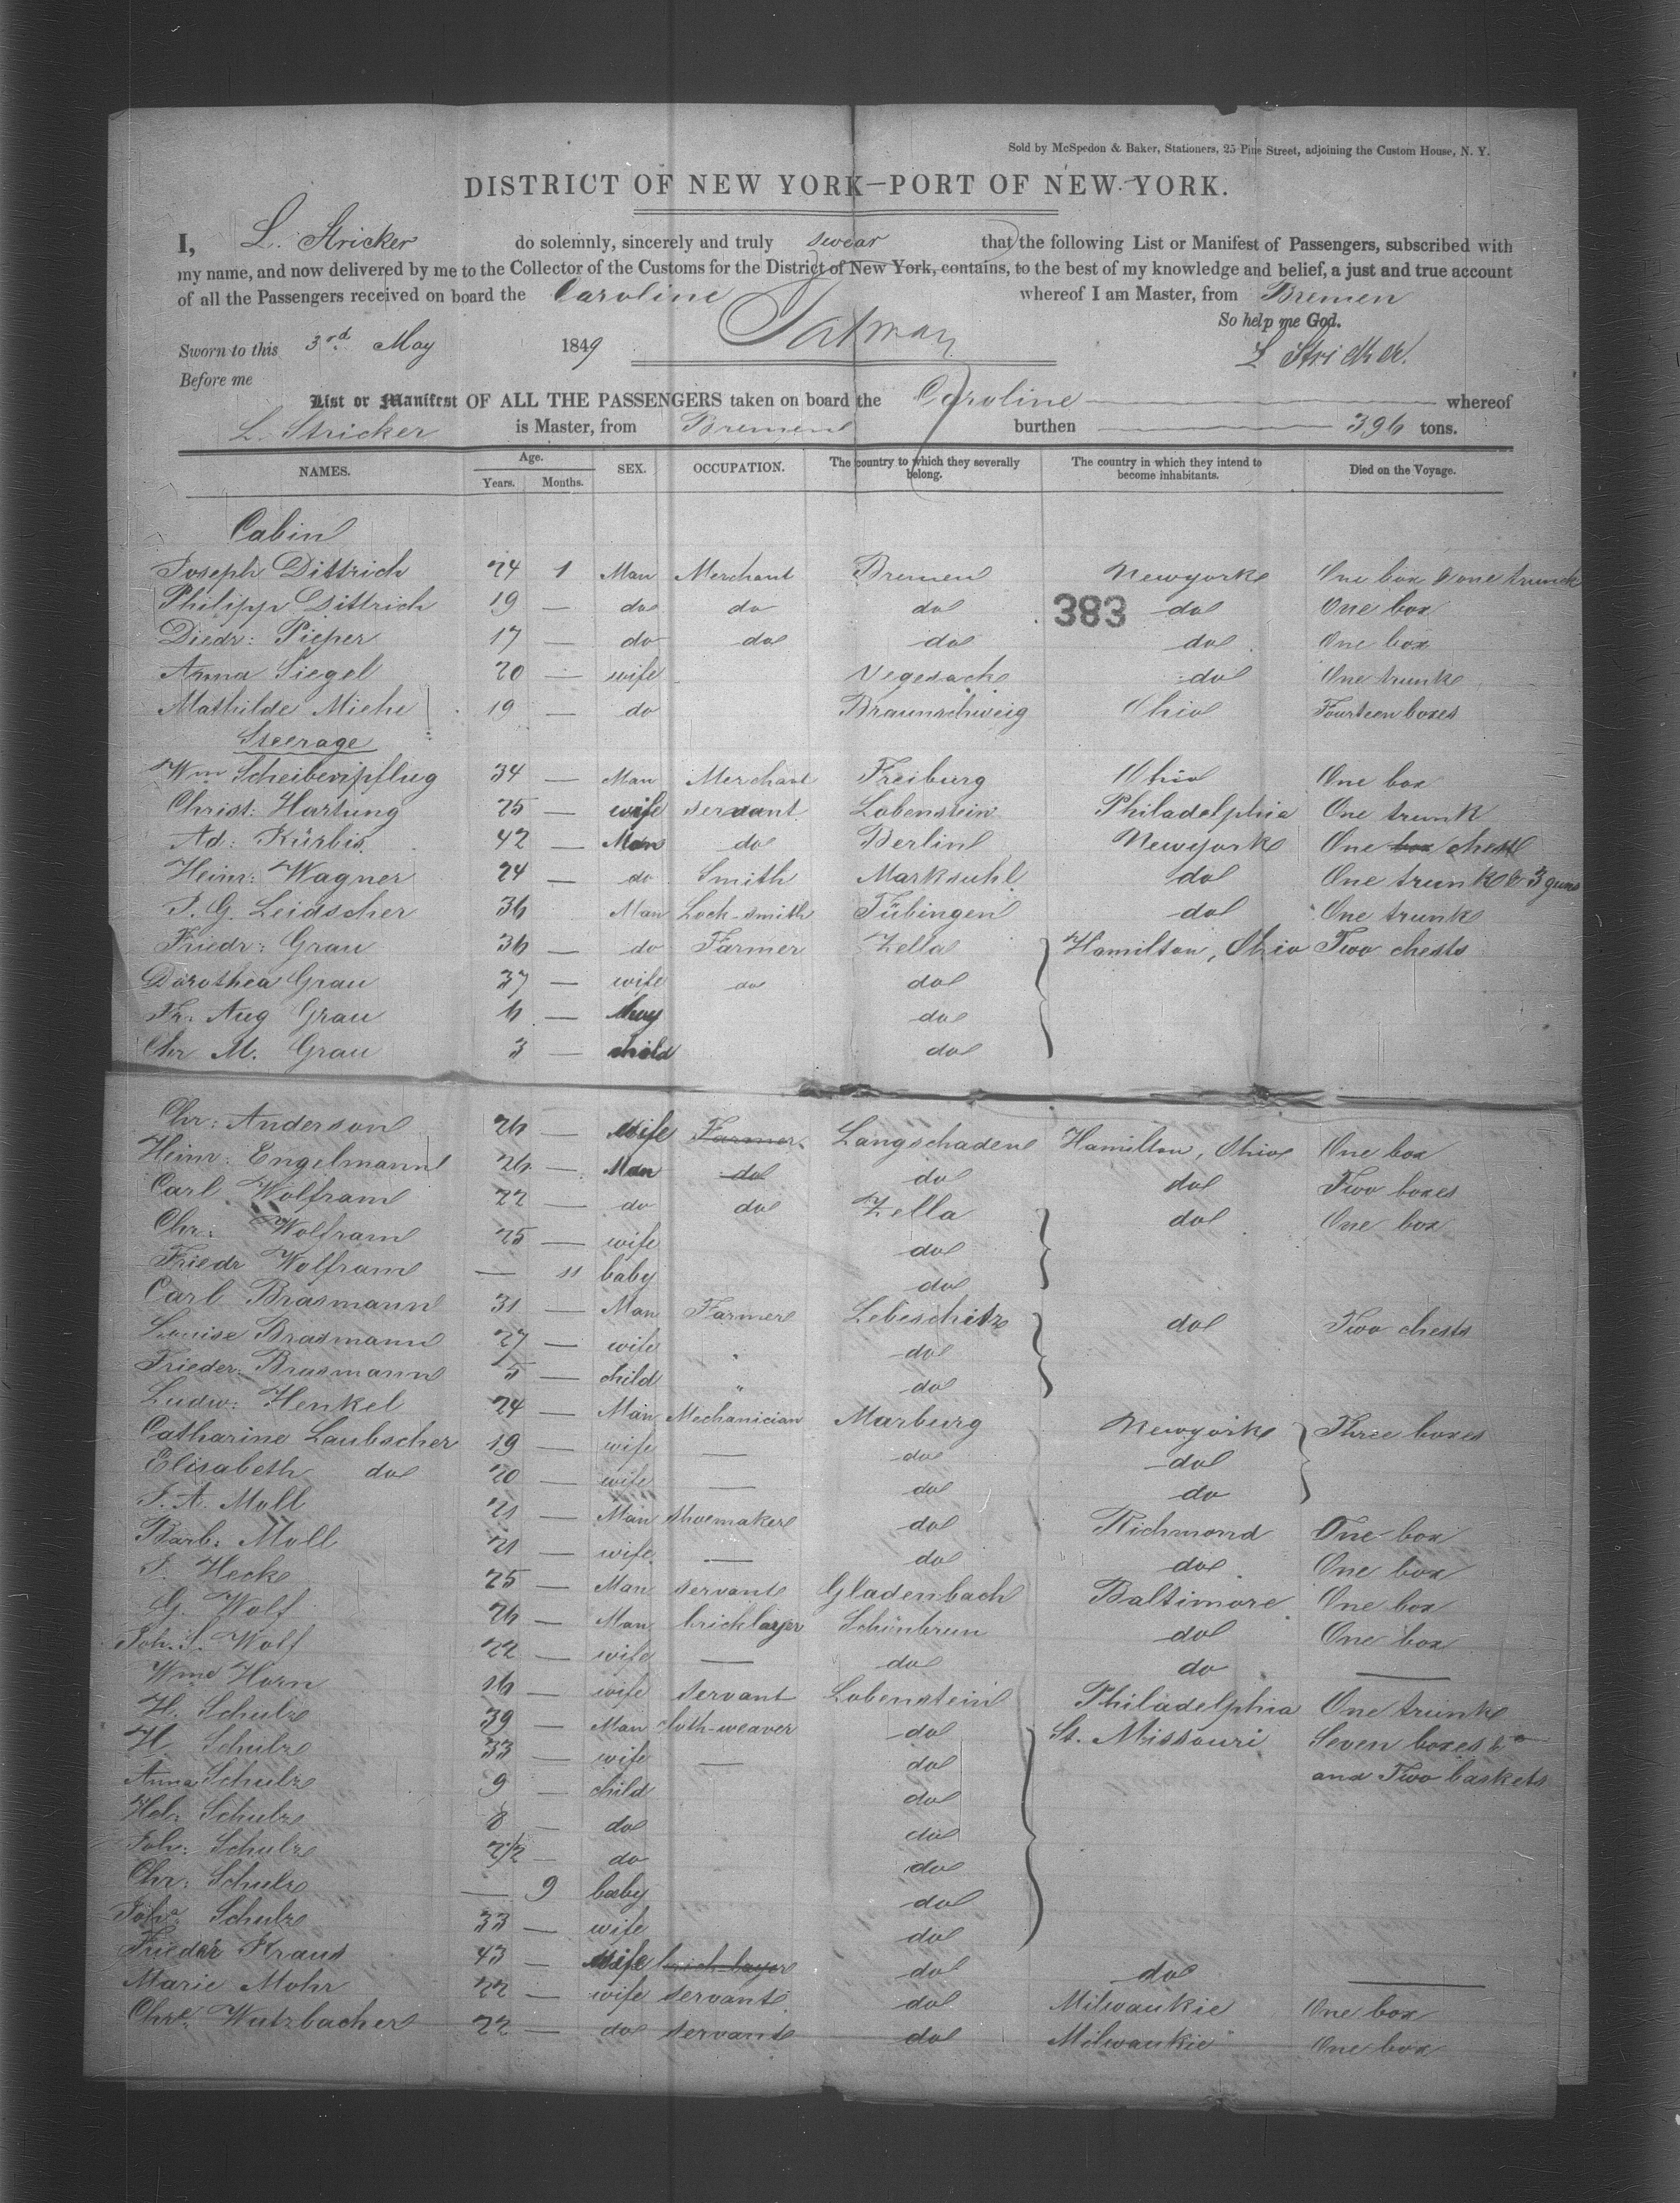 Sold by McSpedon & Baker, Stationers, 25 Pine Street, adjoining the Custom House, N. Y.
DISTRICT OF NEW YORK—PORT OF NEW YORK.
I, L. Stricker do solemnly, sincerely and truly swear that the following List or Manifest of Passengers, subscribed with
my name, and now delivered by me to the Collector of the Customs for the District of New York, contains, to the best of my knowledge and belief, a just and true account
of all the Passengers received on board the Caroline whereof I am Master, from Bremen
So help me God.
Sworn to this 3rd May 1849 L Stricker.
Before me
List or Manifest OF ALL THE PASSENGERS taken on board the Caroline whereof
L. Stricker is Master, from Bremen burthen 396 tons.
NAMES. Age. Years. Months. SEX. OCCUPATION. The country to which they severally belong. The country in which they intend to become inhabitants. Died on the Voyage.
Cabin
Joseph Dittrich 24 1 Man Merchant Bremen Newyork One box & one trunck
Philipp Dittrich 19 — do do do 383 do One box
Diedr: Pieper 17 — do do do do One box
Anna Siegel 20 — wife Vegesack do One trunk
Mathilde Miehe 19 — do Braunschweig Ohio Fourteen boxes
Steerage
Wm Scheibenpflug 34 — Man Merchant Freiburg Ohio One box
Christ: Hartung 25 — wife servant Lobenstein Philadelphia One trunk
Ad: Kürbis 42 — Man do Berlin Newyork One box chest
Heinr: Wagner 24 — do Smith Marksuhl do One trunk & 3 guns
J. G. Leidscher 36 Man Lock-smith Tübingen do One trunk
Friedr: Grau 36 — do Farmer Zella Hamilton, Ohio Two chests
Dorothea Grau 37 — wife do do
Fr. Aug Grau 6 — boy do
Chr M. Grau 3 — child do
Chr: Anderson 26 — wife Farmer Langschaden Hamilton, Ohio One box
Heinr: Engelmann 26 — Man do do do Two boxes
Carl Wolfram 22 — do do Zella do One box
Chr: Wolfram 25 — wife do
Friedr Wolfram — 11 baby do
Carl Brasmann 31 — Man Farmer Lebeschitz do Two chests
Louise Brasmann 27 — wife " do
Frieder: Brasmann 5 — child " do
Ludw: Henkel 24 — Man Mechanician Marburg Newyork Three boxes
Catharine Laubscher 19 — wife — do do
Elisabeth do 20 — wife — do do
J. A. Moll 21 — Man shoemaker do Richmond One box
Barb: Moll 21 — wife — do do One box
J. Hecke 25 — Man servant Gladenbach Baltimore One box
G. Wolf 26 — Man bricklayer Schönbrun do One box
Joh. S. Wolf 22 — wife — do do —
Wme Horn 16 — wife servant Lobenstein Philadelphia One trunk
H. Schulz 39 — Man cloth-weaver do St. Missouri Seven boxes &
H. Schulz 33 — wife — do and Two baskets
Anna Schulz 9 — child do
Hel: Schulz 8 — do do
Joh: Schulz 2/2 — do do
Chr: Schulz — 9 baby do
Joh: Schulz 33 — wife do
Frieder Kraus 43 — wife brick-layer do do —
Marie Mohr 22 — wife servant do Milwaukie One box
Chre. Wutzbacher 22 — do servant do Milwaukie One box